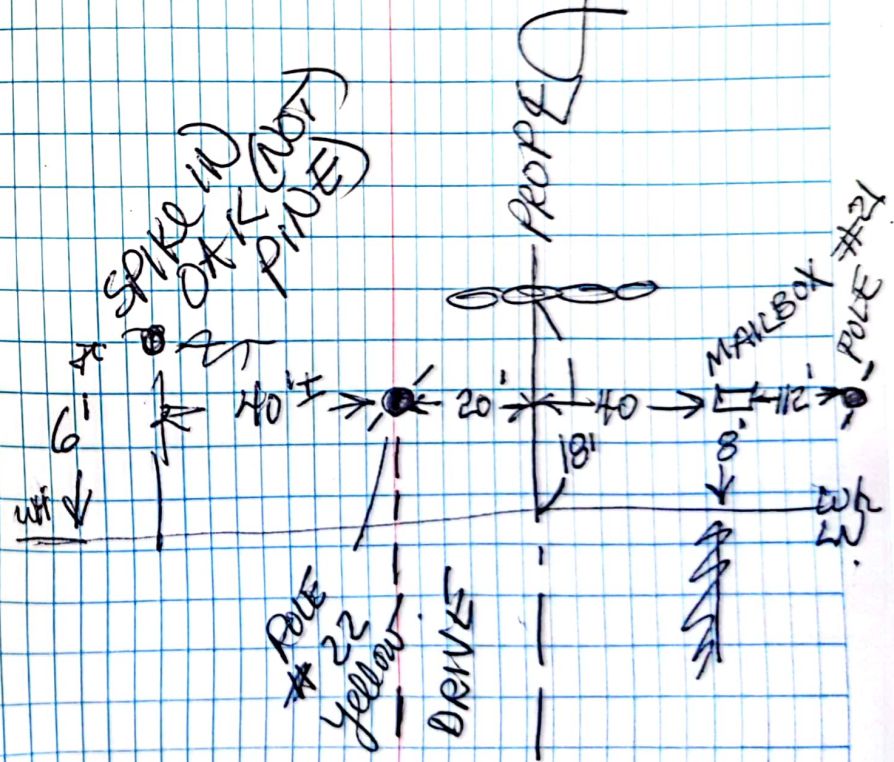 SPIKE IN
OAK (NOT
PINE)
PROP
MAILBOX
POLE #21
6'
40'±
20'
40
12'
18'
8'
POLE
# 22
Yellow
DRIVE